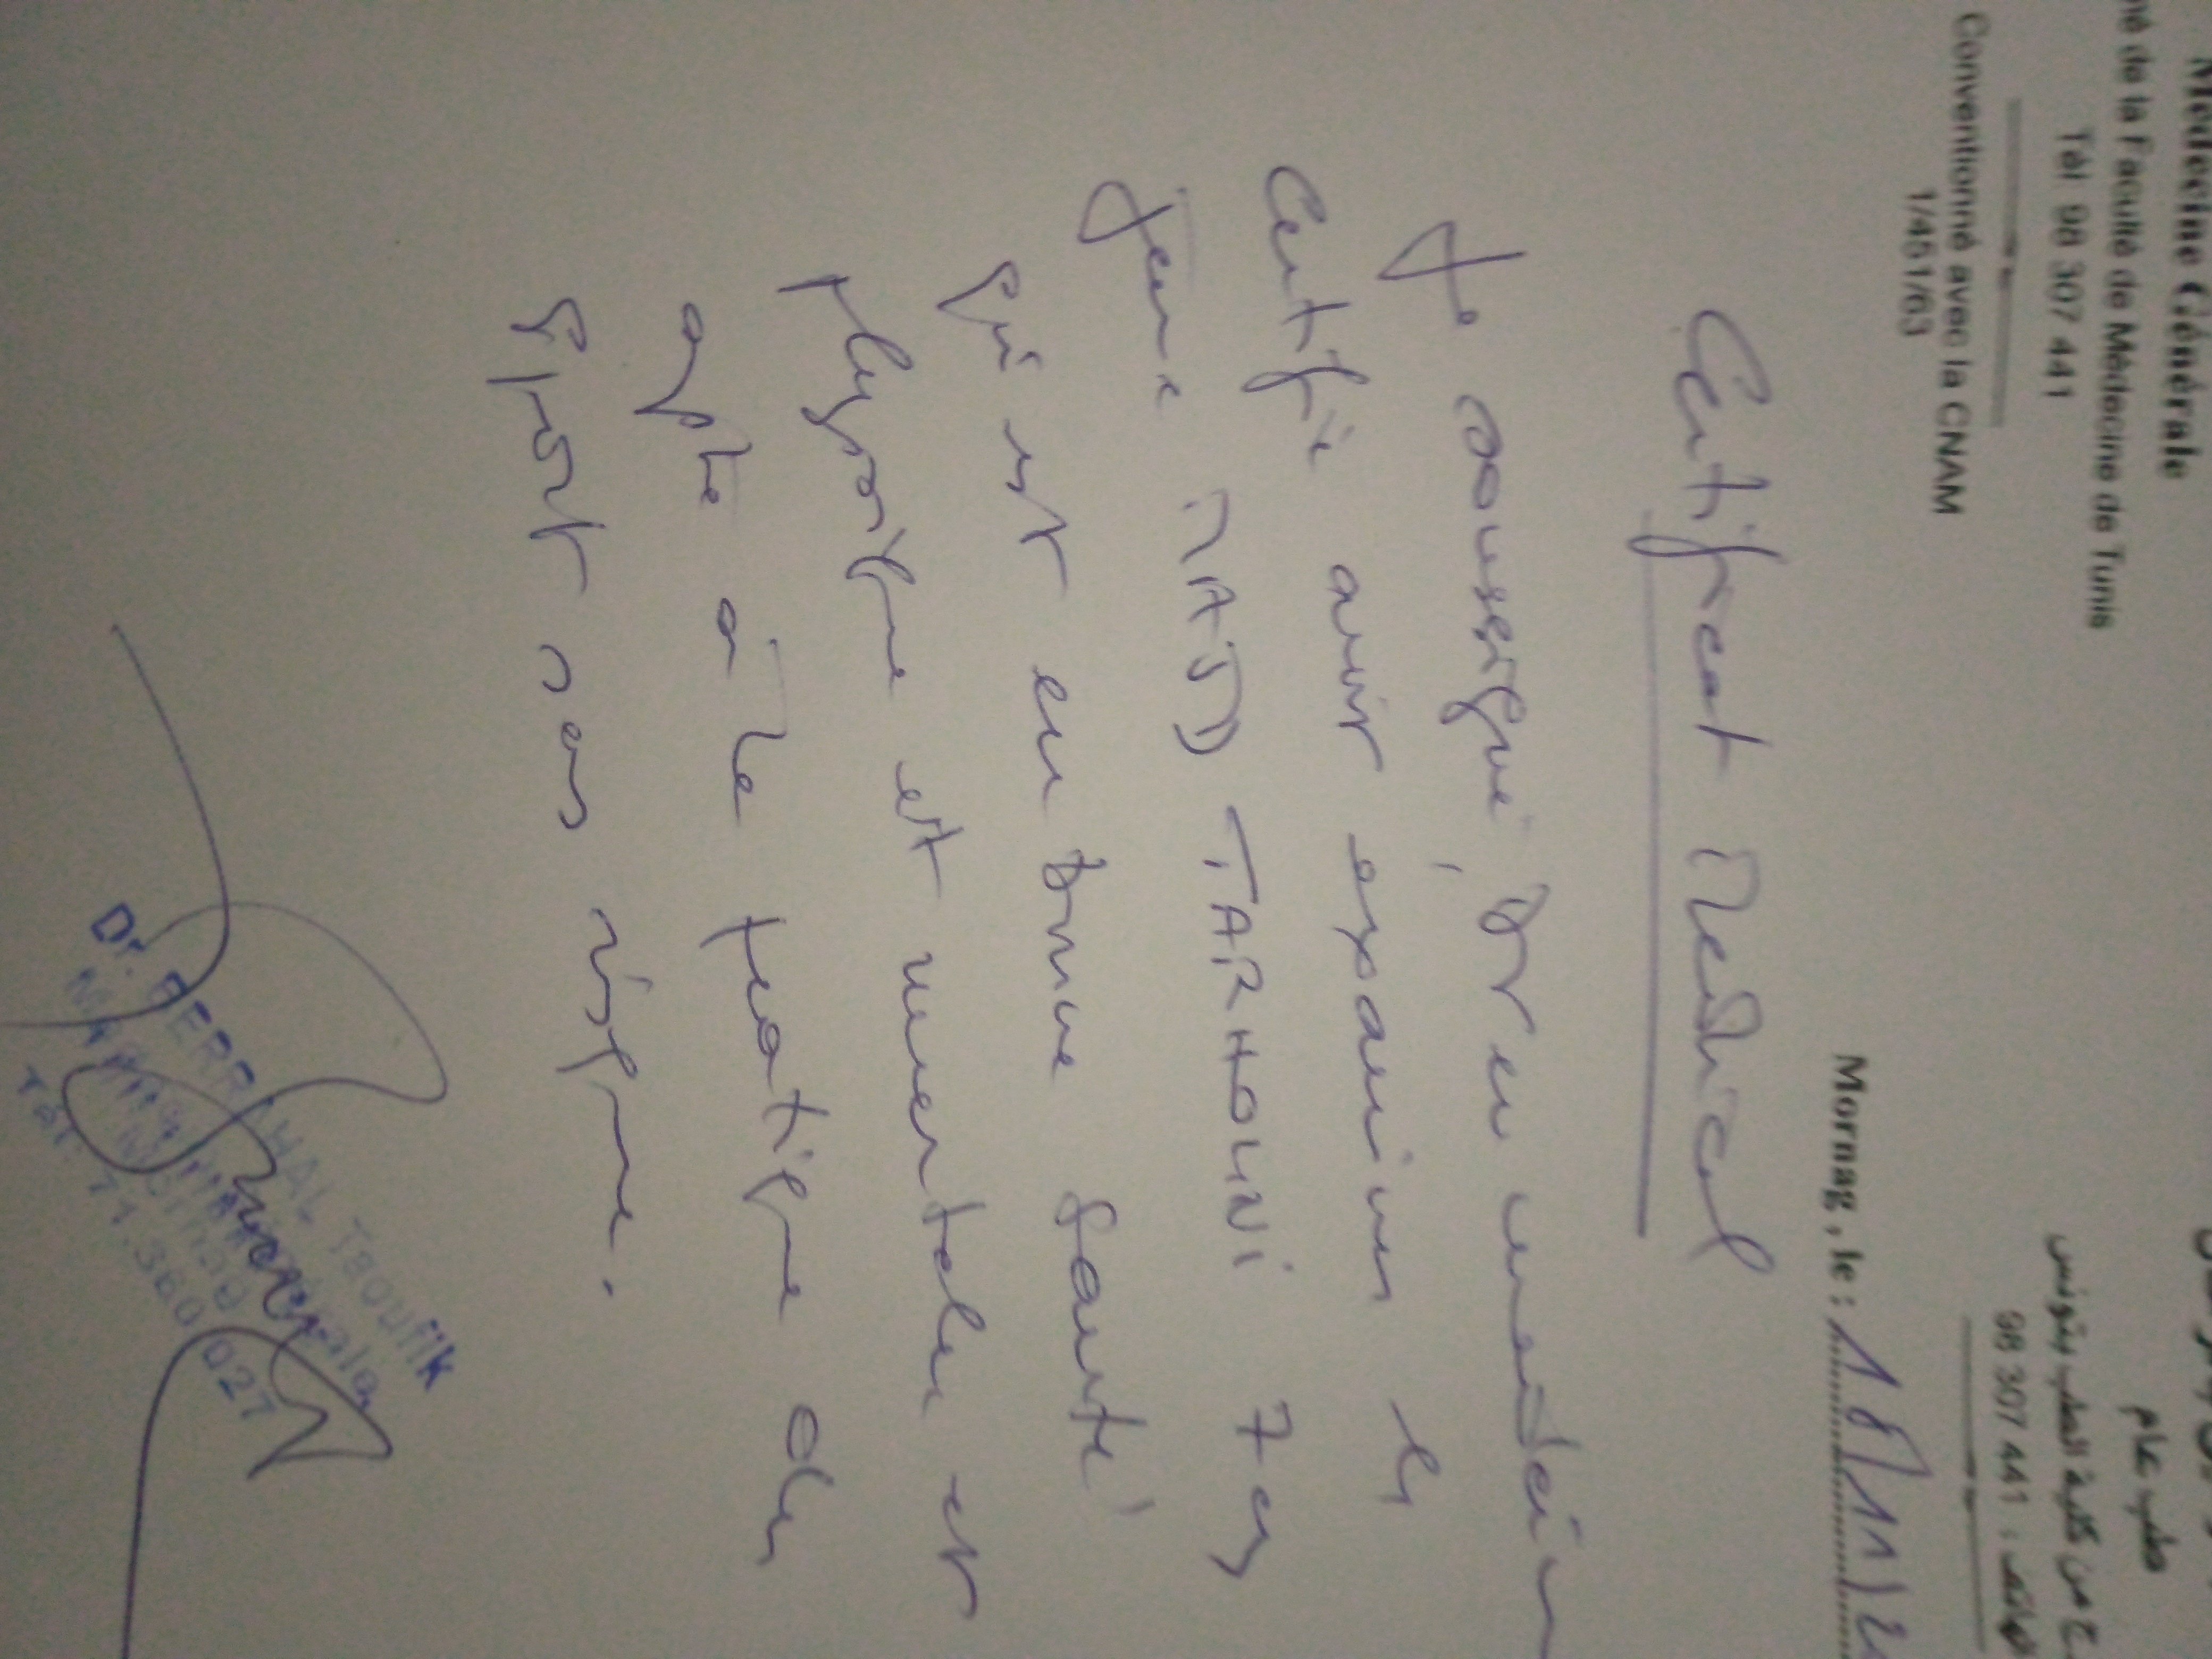 Médecine Générale
de la Faculté de Médecine de Tunis
Tél: 98 307 441
Conventionné avec la CNAM
1/451/63
طب عام
من كلية الطب بتونس
الهاتف : 441 307 98
Mornag , le : 18/11/2
Certificat Médical
Je soussigné, Dr en médecin
Certifie avoir examiner le
jeune MAJD TARHOUNI 7 as
qui est en bonne santé
physique et mentale et
apte à la pratique du
sport sans risque.
Dr. BERRAHAL Taoufik
Mornag
Tél: 71.360.027